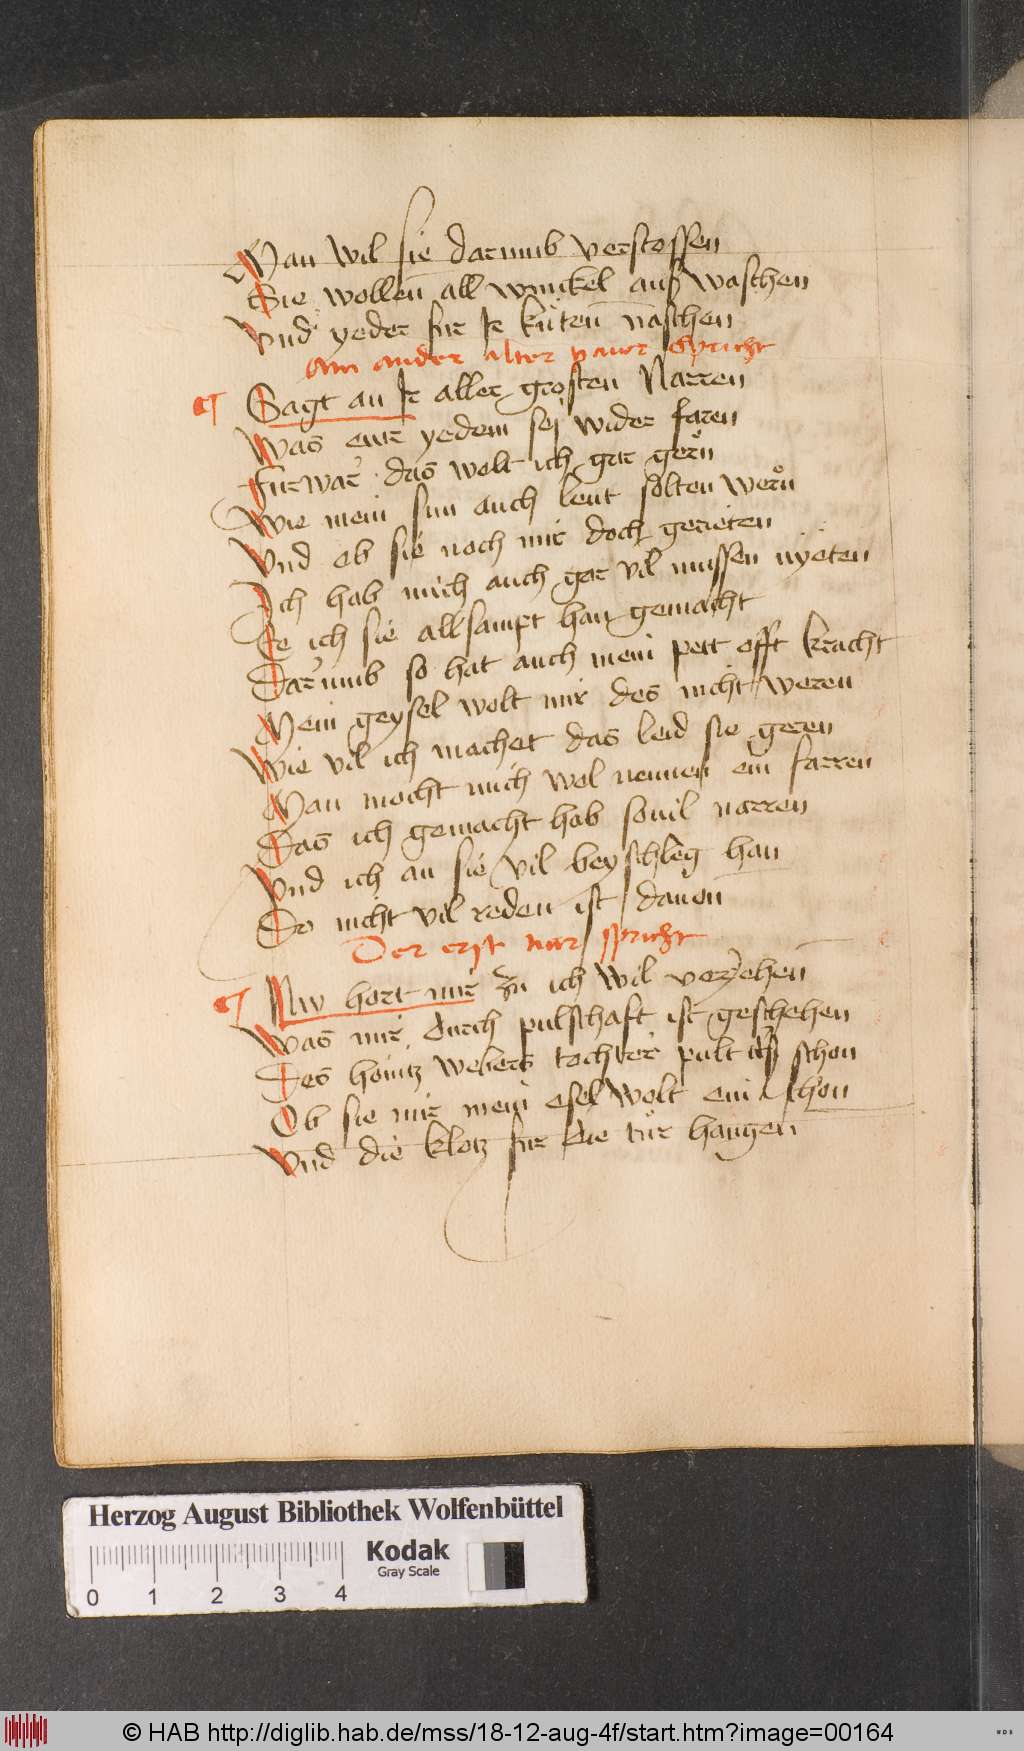 Man wil sie darumb verstossen
Sie wollen all winckel auß waschen
Vnd yeder fur Ir kuten naschen
Ain ander alter narr Spricht
Sagt an Ir aller grosten Narren
Was eur yedem sej wider faren
Furwar das wolt ich gar gern
Wie mein sun auch leut solten wern
Vnd ob sie noch mir doch gerieten
Ich hab mich auch gar vil mussen nyeten
Ee ich sie allsampt han gemacht
Darumb so hat auch mein pett offt kracht
Mein geysel wolt mir des nicht weren
Wie vil ich machet das leid sie geren
Man mocht mich wol nennen ein farren
Das ich gemacht hab souil narren
Vnd ich an sie vil beyschleg han
Do nicht vil reden ist dauon
Der erst narr spricht
Nw hort mir zu ich wil veryehen
Was mir durch pulschaft ist geschehen
Des heintz webers tochter pult ich schon
Ob sie mir mein esel wolt ein thon
Vnd die klotz fur die tur hangen
Herzog August Bibliothek Wolfenbüttel
Kodak
Gray Scale
0 1 2 3 4
© HAB http://diglib.hab.de/mss/18-12-aug-4f/start.htm?image=00164